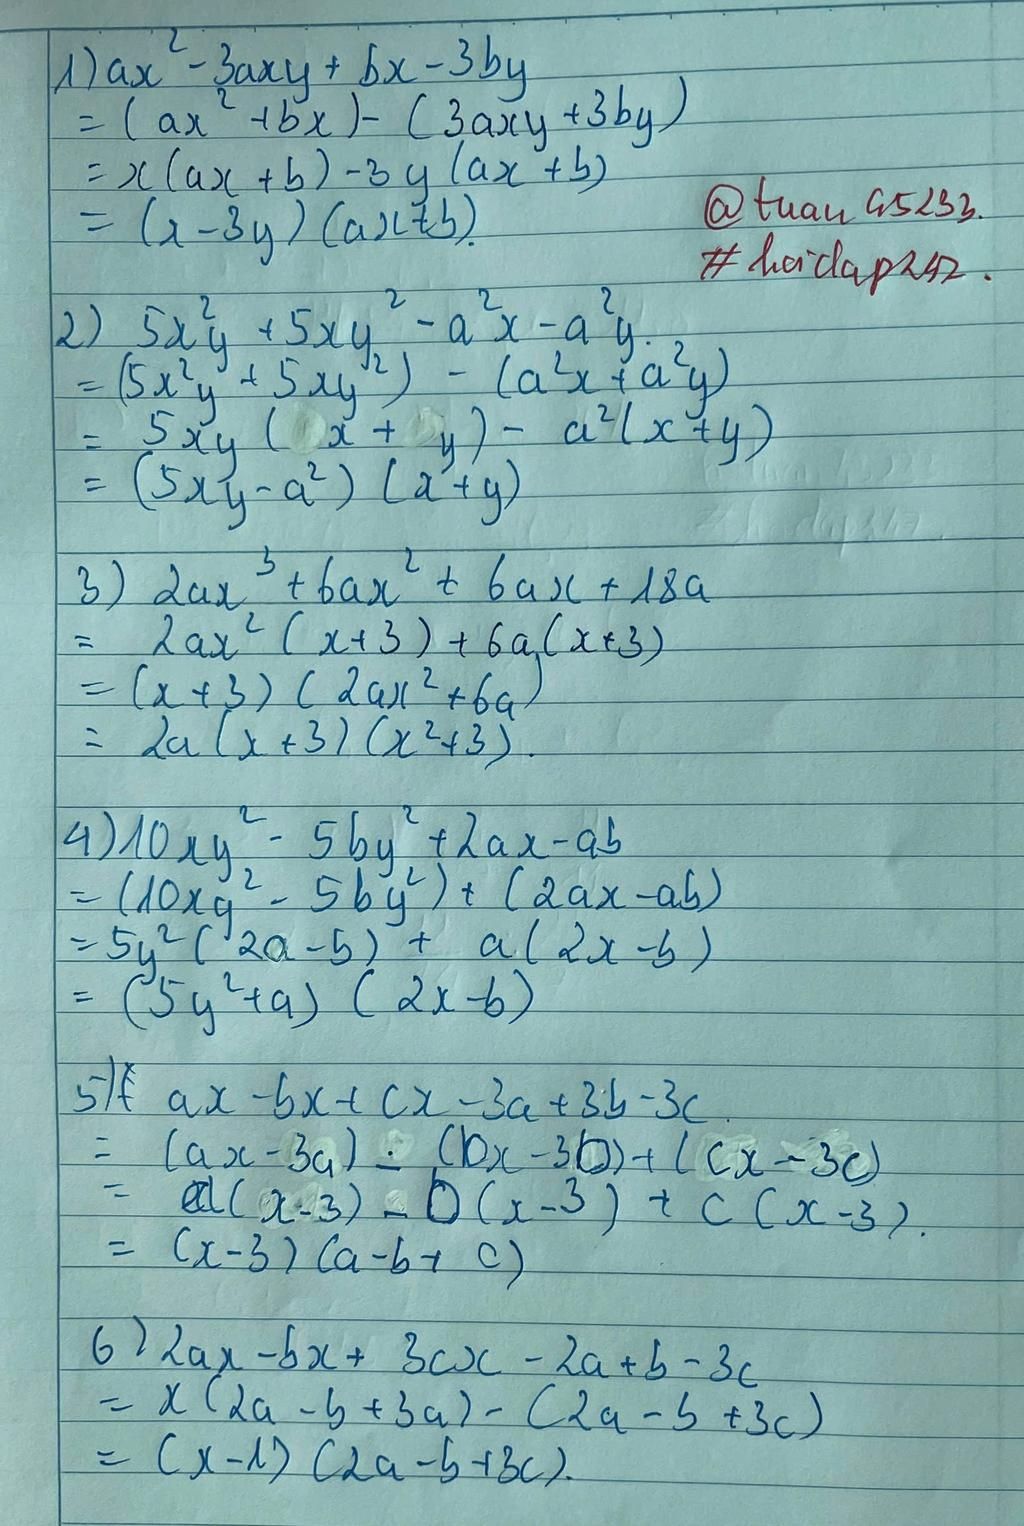 1) ax² - 3axy + bx - 3by
= (ax² + bx) - (3axy + 3by)
= x(ax + b) - 3y(ax + b)
= (x - 3y)(ax + b).
@tuan95233.
#hoidap247.
2) 5x²y + 5xy² - a²x - a²y.
= (5x²y + 5xy²) - (a²x + a²y)
= 5xy (x + y) - a²(x + y)
= (5xy - a²) (x + y)
3) 2ax³ + 6ax² + 6ax + 18a
= 2ax² (x + 3) + 6a(x + 3)
= (x + 3) (2ax² + 6a)
= 2a(x + 3)(x² + 3).
4) 10xy² - 5by² + 2ax - ab
= (10xy² - 5by²) + (2ax - ab)
= 5y² (2a - b) + a(2x - b)
= (5y² + a) (2x - b)
5) ax - bx + cx - 3a + 3b - 3c.
= (ax - 3a) - (bx - 3b) + (cx - 3c)
= a(x - 3) - b(x - 3) + c(x - 3).
= (x - 3)(a - b + c)
6) 2ax - bx + 3cx - 2a + b - 3c
= x(2a - b + 3a) - (2a - b + 3c)
= (x - 1)(2a - b + 3c).